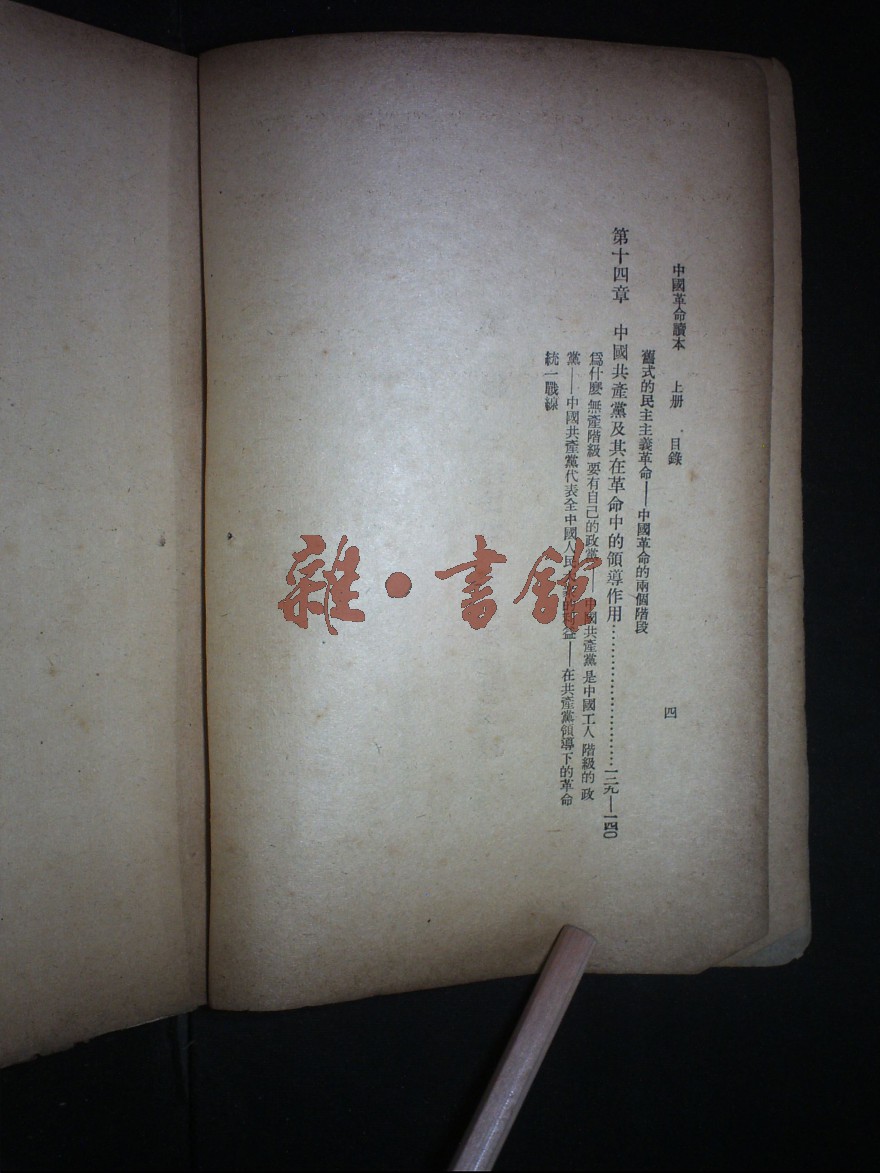 中國革命讀本 上册 目錄 四
舊式的民主主義革命——中國革命的兩個階段
第十四章 中國共產黨及其在革命中的領導作用……………………一二九—一四〇
爲什麼無產階級要有自己的政黨——中國共產黨是中國工人階級的政
黨——中國共產黨代表全中國人民大衆的利益——在共產黨領導下的革命
統一戰線
雜·書館